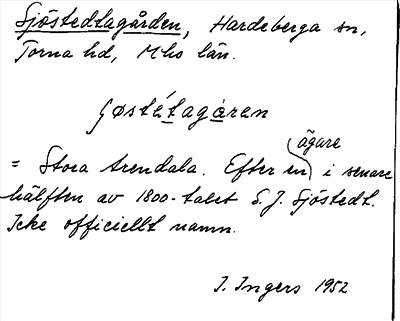 Sjöstedtagården, Hardeberga sn,
Torna hd, Mhs län.
ʃøstétagåren
= Stora Arendala. Efter en ägare i senare
hälften av 1800-talet S. J. Sjöstedt.
Icke officiellt namn.
I. Ingers 1952